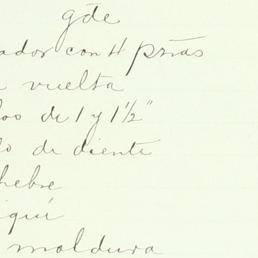 gde
ador con 4 pzas
vuelta
os de 1 y 1½"
o de diente
hebre
iquí
moldura